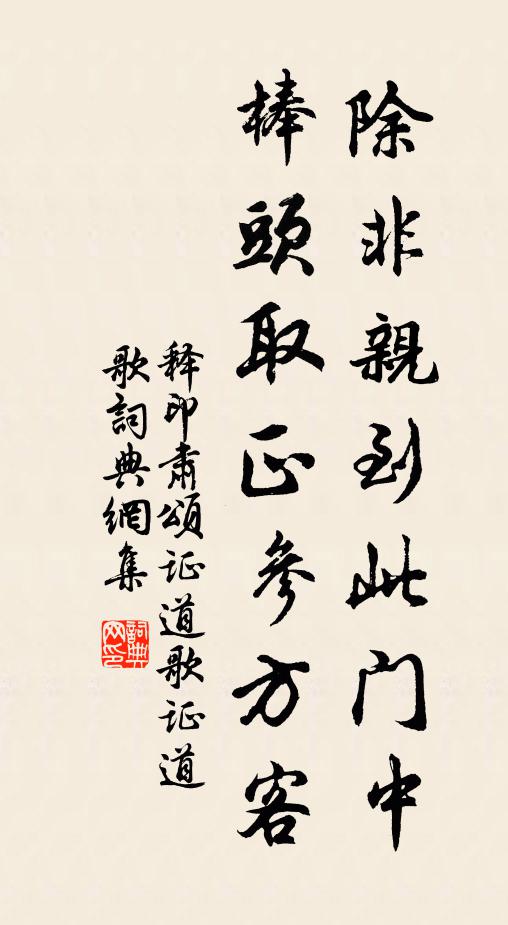 除非親到此门中
棒頭取正參方客
释印肃頌证道歌证道
歌詞典網集
詞典网印